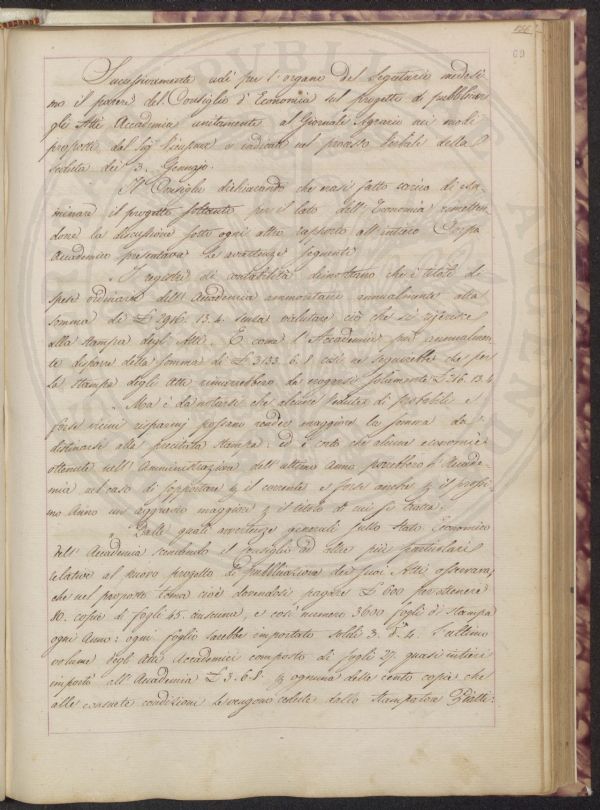 69
Successivamente udì per l'organo del Segretario medesi
mo il parere del Consiglio d'Economia sul progetto di pubblicare
gli Atti Accademici unitamente al Giornale Agrario nei modi
proposti dal Sig. e indicati nel processo Verbale della
seduta dei 3. Gennajo.
Il Consiglio dichiarando che erasi fatto carico di esa
minare il progetto soltanto per il lato dell'Economia rimetten
done la discussione sotto ogni altro rapporto all'intiero Corpo
Accademico presentava le avvertenze seguenti
I registri di contabilità dimostrano che i titoli di
spese ordinarie dell'Accademia ammontano annualmente alla
somma di £ 2916. 13. 4. senza valutare ciò che si riferisce
alla stampa degli Atti. E come l'Accademia può annualmen
te disporre della somma di £ 3133. 6. 8 così ne seguirebbe che per
la stampa degli atti rimarrebbero da erogarsi solamente £ 216. 13. 4
Ma è da notarsi che alcune vedute di probabili e
forse vicini risparmj possono render maggiore la somma da
destinarsi alla precitata stampa: ed è certo che alcune economie
ottenute nell'amministrazione dell'ultimo anno l'Accade-
mia nel caso di sopportare p il corrente e forse anche p il prossi-
mo anno un aggravio maggiore p il titolo di cui si tratta.
Dalle quali avvertenze generali sullo stato Economico
dell'Accademia scendendo il Consiglio ad altre più particolari
relative al nuovo progetto di pubblicazione dei suoi Atti osservava,
che nel proposto tema cioè dovendosi pagare £ 600 per ottenere
80. copie di fogli 45. ciascuna, e così numero 3600 fogli di stampa
ogni Anno: ogni foglio sarebbe importato soldi 3. d. 4. L'ultimo
volume degli Atti Accademici composto di fogli 27 quasi intieri
importò all'Accademia £ 3. 6. 8. p ognuna delle cento copie che
alle consuete condizioni le vengono cedute dallo Stampatore